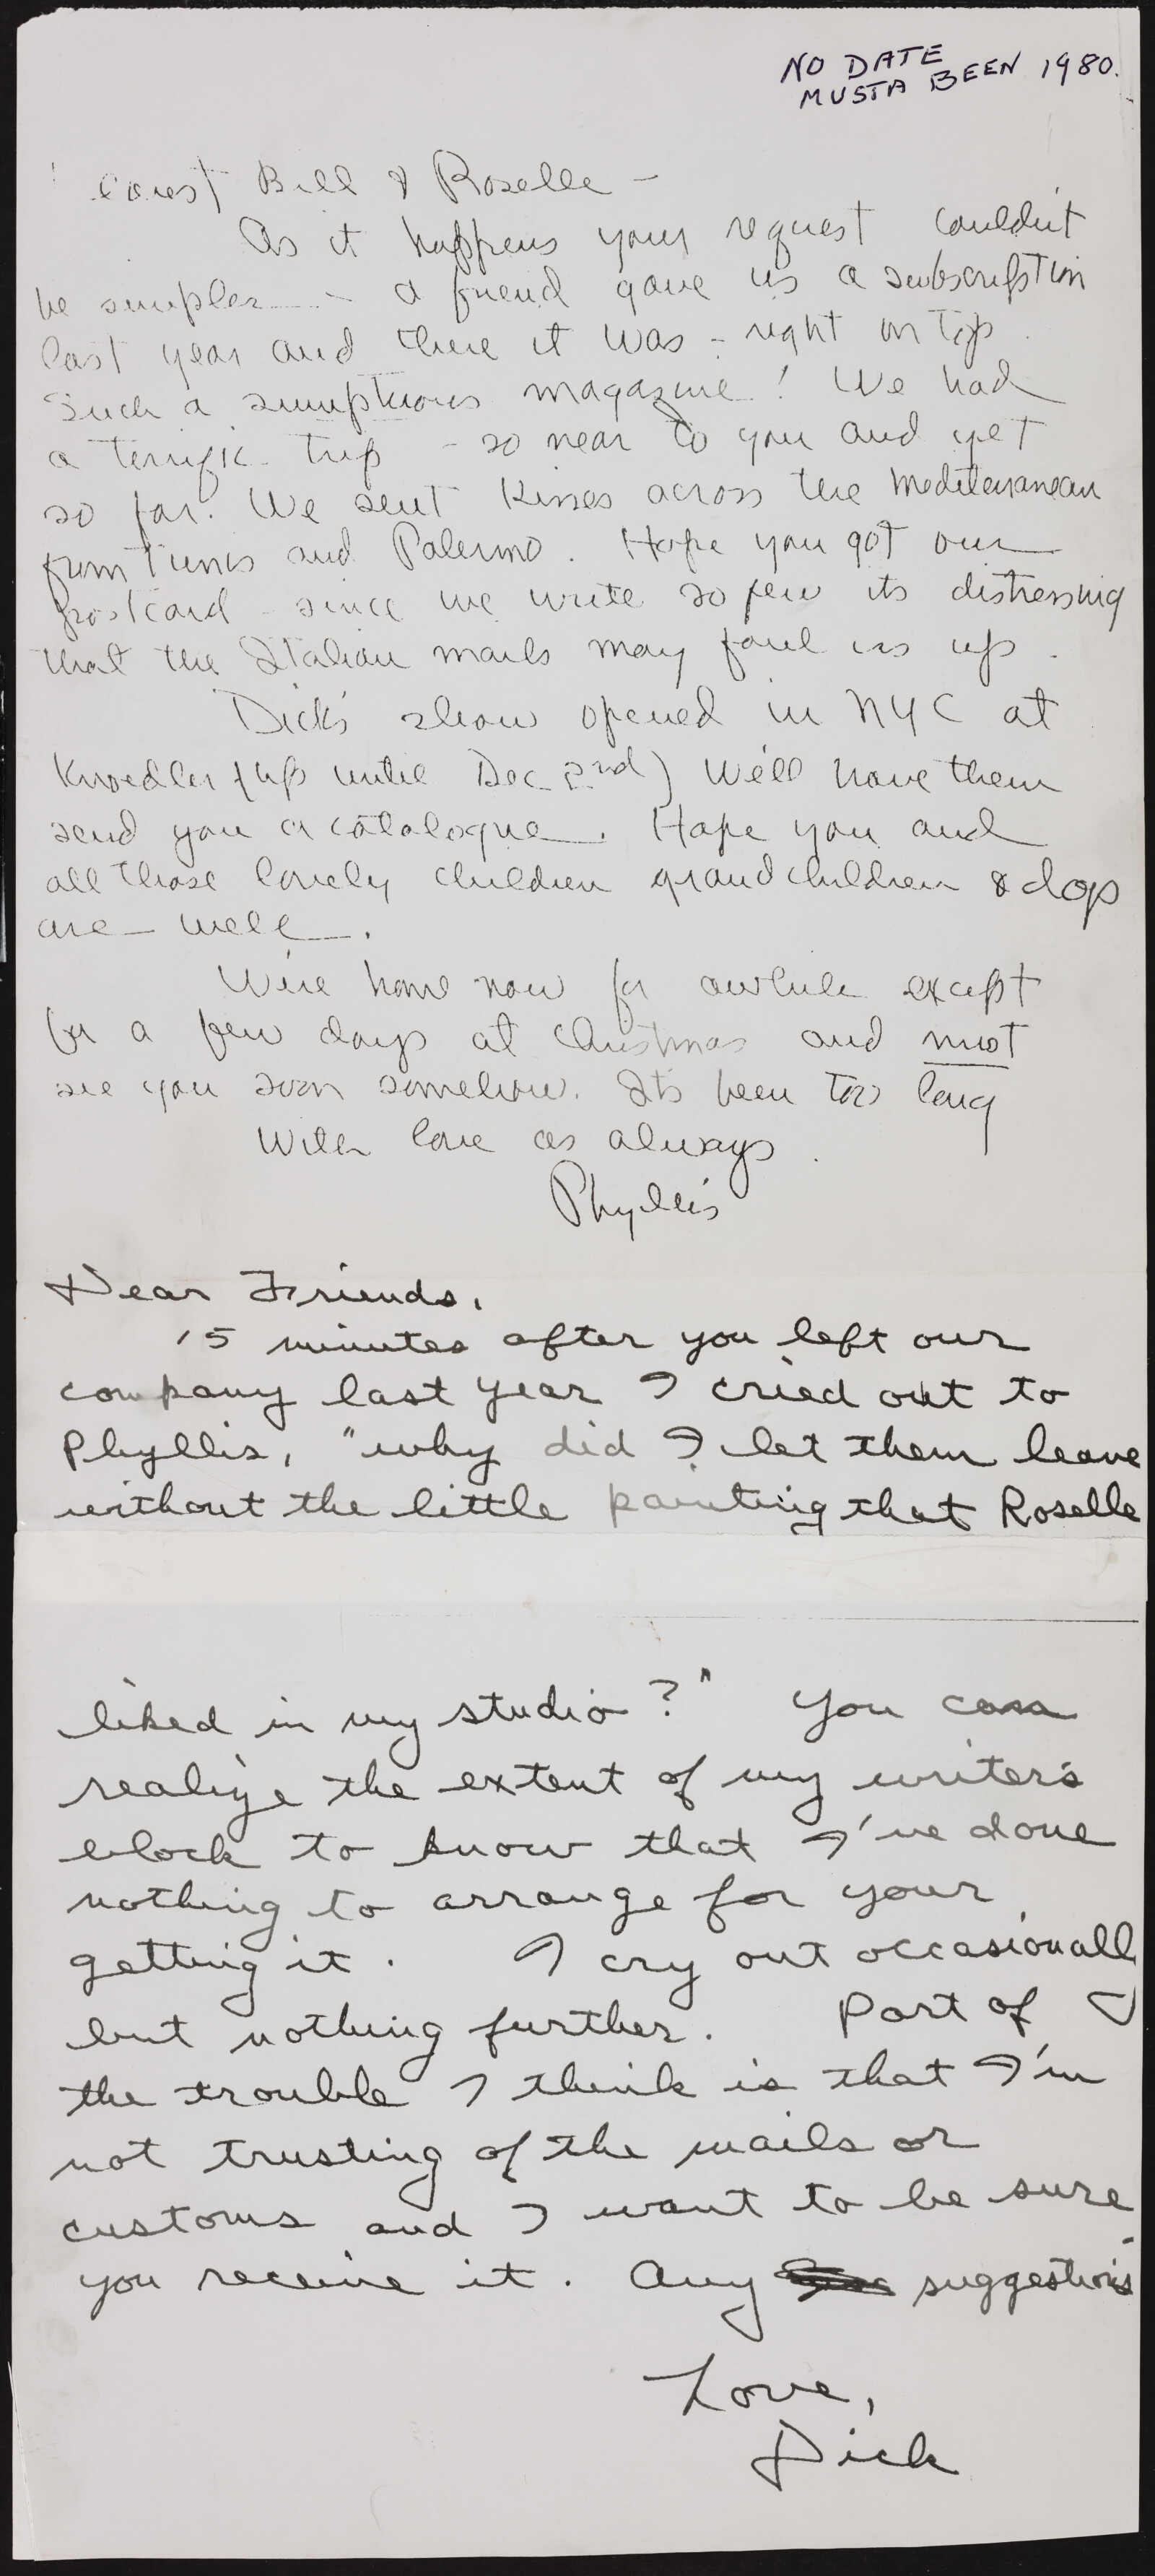 NO DATE
MUSTA BEEN 1980.
Bill & Roselle -
As it happens your request couldn't
be simpler - a friend gave us a subscription
last year and there it was - right on top.
Such a sumptuous magazine! We had
a terrific trip - so near to you and yet
so far. We sent kisses across the Mediteranean
from Tunis and Palermo. Hope you got our
postcard - since we write so few its distressing
that the Italian mails may foul us up.
Dick's show opened in NYC at
Knoedler (up until Dec 2nd) We'll have them
send you a catalogue. Hope you and
all those lovely children grandchildren & dogs
are well.
We're home now for awhile except
for a few days at Christmas and must
see you soon somehow. It's been too long
With love as always.
Phyllis
Dear Friends,
15 minutes after you left our
company last year I cried out to
Phyllis, "why did I let them leave
without the little painting that Roselle
liked in my studio?" You can
realize the extent of my writer's
block to know that I've done
nothing to arrange for your
getting it. I cry out occasionally
but nothing further. Part of
the trouble I think is that I'm
not trusting of the mails or
customs and I want to be sure
you receive it. Any suggestions
Love,
Dick